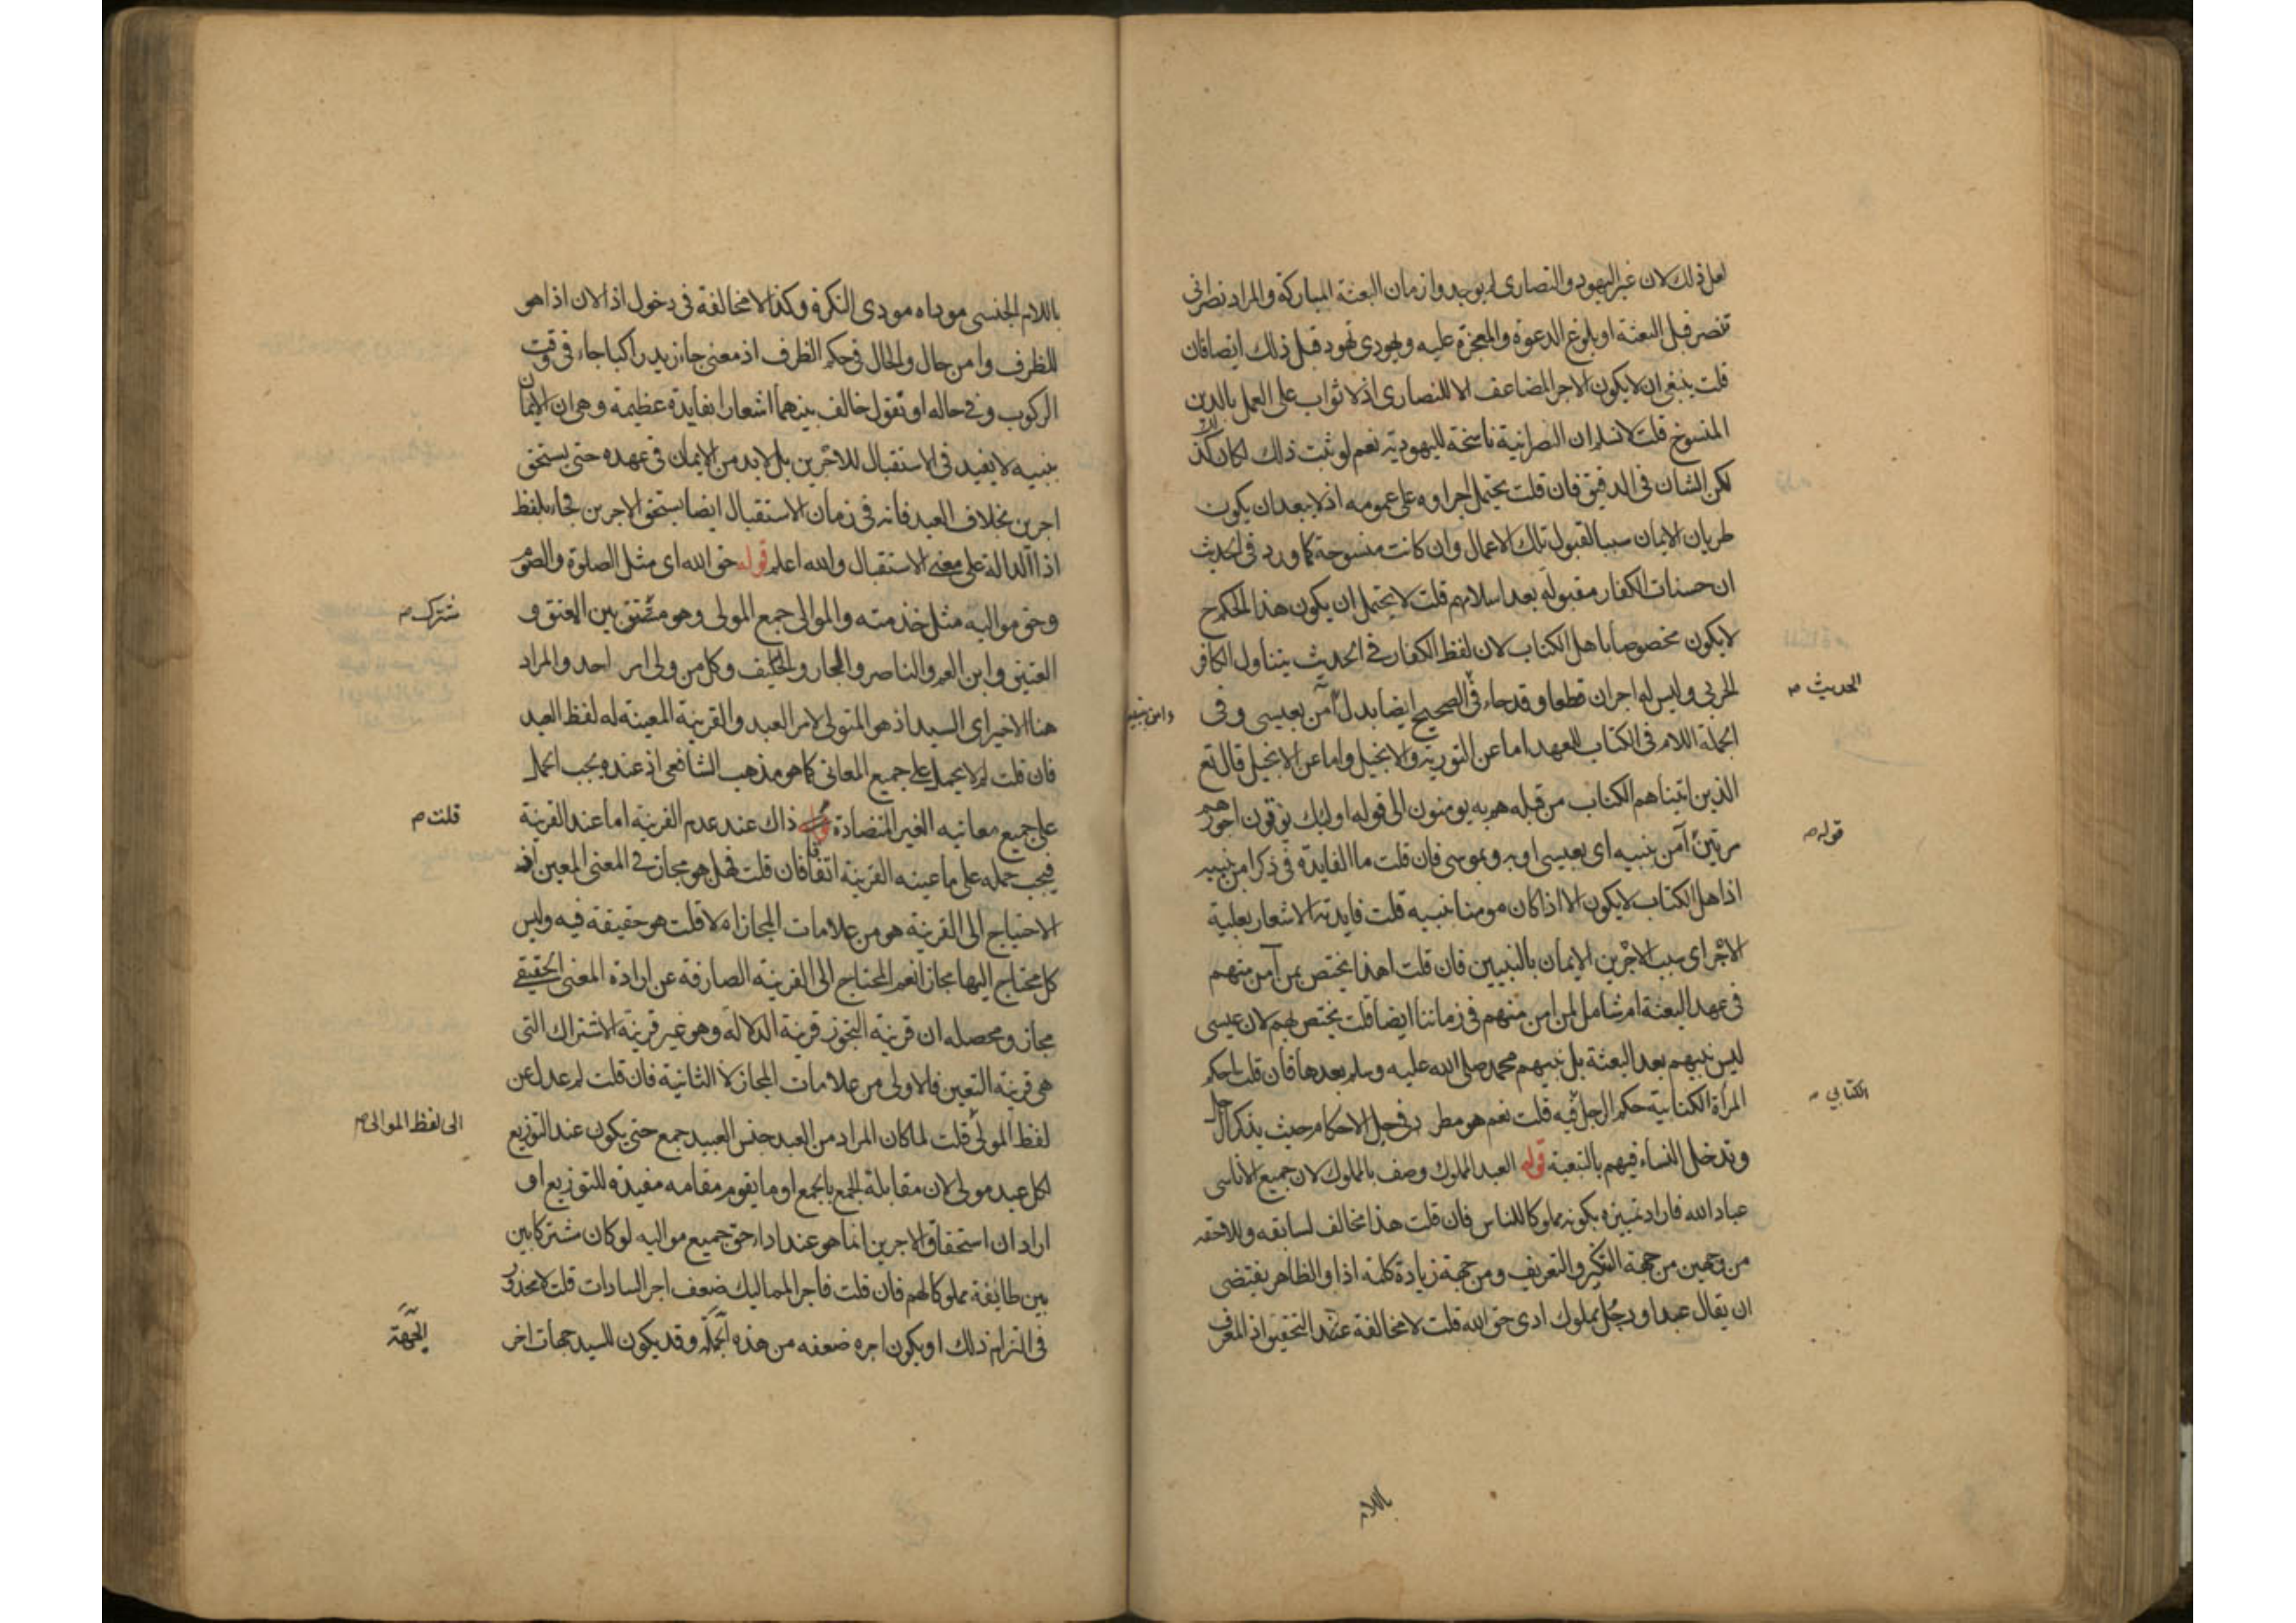 لعل ذلك لان غير اليهود والنصارى لم يوجدوا زمان البعثة المباركة والمراد نصرانى
تنصر قبل البعثة او بلوغ الدعوة والمعجزة عليه ويهودى تهود قبل ذلك ايضا فان
قلت ينبغى ان لا يكون الاجر المضاعف الا للنصارى اذ لا ثواب على العمل بالدين
المنسوخ قلت لا نسلم ان النصرانية ناسخة لليهودية نعم لو ثبت ذلك لكان كذلك
لكن الشان فى الدقيق فان قلت يحتمل اجراوه على عمومه اذ لا يبعد ان يكون
طريان الايمان سببا لقبول تلك الاعمال وان كانت منسوخة كما ورد فى الحديث
ان حسنات الكفار مقبولة بعد اسلامهم قلت لا يحتمل ان يكون هذا الحكم ح
لا يكون مخصوصا باهل الكتاب لان لفظ الكفار فى الحديث يتناول الكافر
الحربى وليس له اجران قطعا وقد جاء فى الصحيح ايضا بدل آمن بعيسى وفى
الحديث
وامن بنبيه
الجملة اللام فى الكتاب للعهد اما عن التورية والانجيل واما عن الانجيل قال تع
الذين اتيناهم الكتاب من قبله هم به يومنون الى قوله اوليك يوتون اجورهم
مرتين آمن بنبيه اى بعيسى او به وبموسى فان قلت ما الفايدة فى ذكر امن بنبيه
قوله
اذ اهل الكتاب لا يكون الا اذا كان مومنا بنبيه قلت فايدته الاشعار بعلية
الاجر اى سبب الاجرين الايمان بالنبيين فان قلت اهذا يختص بمن آمن منهم
فى عهد البعثة ام شامل لمن امن منهم فى زماننا ايضا قلت يختص بهم لان عيسى
ليس نبيهم بعد البعثة بل نبيهم محمد صلى الله عليه وسلم بعدها فان قلت ما حكم
المرأة الكتابية حكم الرجل فيه قلت نعم هو مطرد فى جل الاحكام حيث يذكر الرجل
الكتابي
وتدخل النساء فيهم بالتبعية قوله العبد المملوك وصف بالمملوك لان جميع الاناسى
عباد الله فاراد تمييزه بكونه مملوكا للناس فان قلت هذا مخالف لسابقه وللاحقه
من وجهين من جهة التنكير والتعريف ومن جهة زيادة كلمة اذا والظاهر يقتضى
ان يقال عبد او رجل مملوك ادى حق الله قلت لا مخالفة عند التحقيق اذ المعرف
باللام
باللام الجنسى موداه مودى النكرة وكذا لا مخالفة فى دخول اذا لان اذا هو
للظرف وامن حال والحال فى حكم الظرف اذ معنى جاء زيد راكبا جاء فى وقت
الركوب وفى حاله او تقول خالف بينهما اشعارا بفايدة عظيمة وهى ان الايمان
بنبيه لا يفيد فى الاستقبال للاجرين بل لا بد من الايمان فى عهده حتى يستحق
اجرين بخلاف العبد فانه فى زمان الاستقبال ايضا يستحق الاجرين فجاء بلفظ
اذا الدالة على معنى الاستقبال والله اعلم قوله حق الله اى مثل الصلوة والصوم
وحق مواليه مثل خدمته والموالى جمع المولى وهو مشترك بين المعتق و
مشترك
العتيق وابن العم والناصر والجار والحليف وكل من ولى امر احد والمراد
هنا الاخير اى السيد اذ هو المتولى لامر العبد والقرينة المعينة له لفظ العبد
فان قلت لم لا يحمل على جميع المعانى كما هو مذهب الشافعى اذ عنده يجب الحمل
على جميع معانيه الغير المتضادة ذاك عند عدم القرينة اما عند القرينة
قلت
فيجب حمله على ما عينته القرينة اتفاقا فان قلت فهل هو مجاز فى المعنى المعين اذ
الاحتياج الى القرينة هو من علامات المجاز ام لا قلت هو حقيقة فيه وليس
كل محتاج اليها مجازا نعم المحتاج الى القرينة الصارفة عن ارادة المعنى الحقيقى
مجاز ومحصله ان قرينة التجوز قرينة الدلالة وهو غير قرينة الاشتراك التى
هى قرينة التعين فالاولى من علامات المجاز لا الثانية فان قلت لم عدل عن
لفظ المولى قلت لما كان المراد من العبد جنس العبيد جمع حتى يكون عند التوزيع
الى لفظ الموالى
لكل عبد مولى لان مقابلة الجمع بالجمع او ما يقوم مقامه مفيدة للتوزيع او
اراد ان استحقاق الاجرين انما هو عند اداء حق جميع مواليه لو كان مشتركا بين
بين طايفة مملوكا لهم فان قلت فاجر المماليك ضعف اجر السادات قلت لا محذور
فى التزام ذلك او يكون اجره ضعفه من هذه الجملة وقد يكون للسيد جهات اخر
الجهة